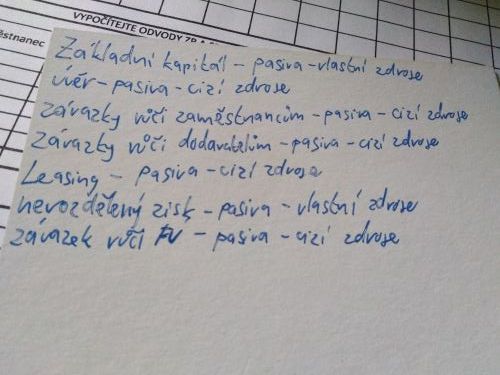 VYPOČÍTEJTE ODVODY ZP A
ěstnanec
Základní kapitál - pasiva - vlastní zdrose
úvěr - pasiva - cizí zdrose
závazky vůči zaměstnancům - pasiva - cizí zdrose
závazky vůči dodavatelům - pasiva - cizí zdrose
Leasing - pasiva - cizí zdrose
nevozdělený zisk - pasiva - vlastní zdrose
závazek vůči FÚ - pasiva - cizí zdrose